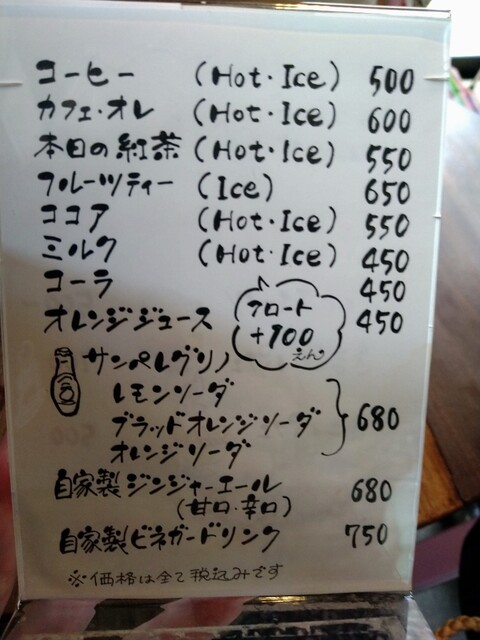 コーヒー (Hot・Ice) 500
カフェ・オレ (Hot・Ice) 600
本日の紅茶 (Hot・Ice) 550
フルーツティー (Ice) 650
ココア (Hot・Ice) 550
ミルク (Hot・Ice) 450
コーラ 450
オレンジジュース 450
フロート
+100
えん
サンペレグリノ
レモンソーダ
ブラッドオレンジソーダ 680
オレンジソーダ
自家製ジンジャーエール 680
(甘口・辛口)
自家製ビネガードリンク 750
※価格は全て税込みです